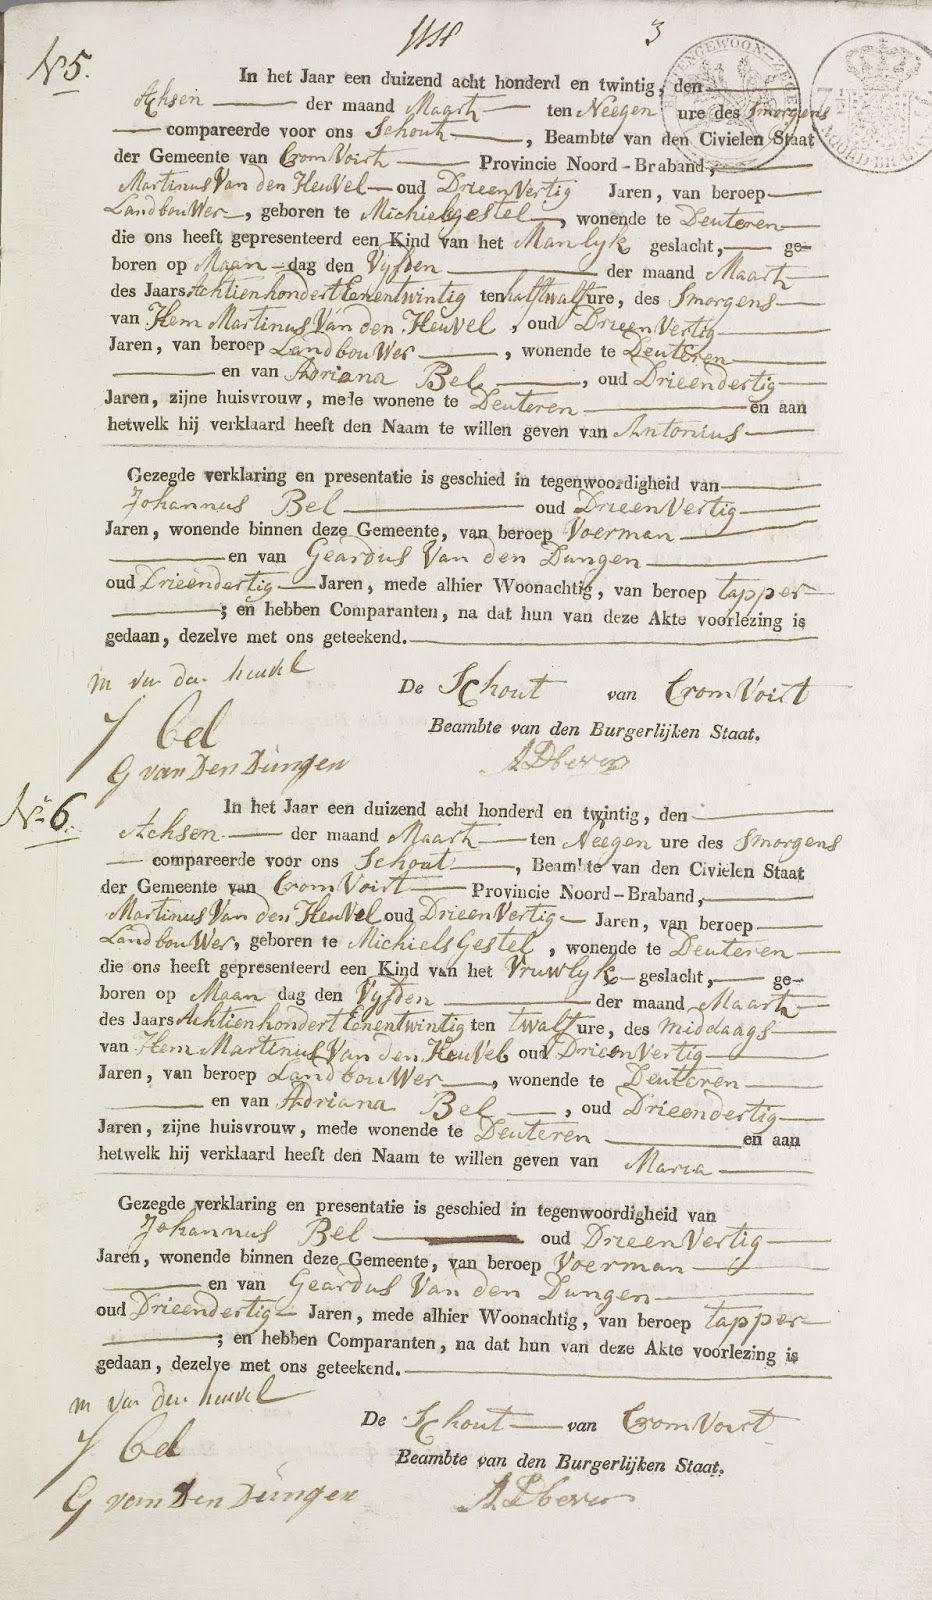 3
N 5.
In het Jaar een duizend acht honderd en twintig, den
Achsen der maand Maart ten Neegen ure des Smorgens
compareerde voor ons Schout, Beambte van den Civielen Staat
der Gemeente van CromVoirt Provincie Noord-Braband,
Martinus Van den HeuVel oud DrieenVertig Jaren, van beroep
LandbouWer, geboren te Michielsgestel, wonende te Deuteren
die ons heeft gepresenteerd een Kind van het Manlyk geslacht, ge-
boren op Maan-dag den Vyfden der maand Maart
des Jaars AchtienhondertEenentwintig ten halftwalf ure, des Smorgens
van Hem Martinus Van den HeuVel, oud DrieenVertig
Jaren, van beroep LandbouWer, wonende te Deuteren
en van Adriana Bel, oud Drieendertig
Jaren, zijne huisvrouw, mede wonene te Deuteren en aan
hetwelk hij verklaard heeft den Naam te willen geven van Antonius
Gezegde verklaring en presentatie is geschied in tegenwoordigheid van
Johannus Bel oud DrieenVertig
Jaren, wonende binnen deze Gemeente, van beroep Voerman
en van Geardus Van den Dungen
oud Drieendertig Jaren, mede alhier Woonachtig, van beroep tapper
; en hebben Comparanten, na dat hun van deze Akte voorlezing is
gedaan, dezelve met ons geteekend.
m van den heuvel
De Schout van CromVoirt
J Bel
Beambte van den Burgerlijken Staat.
G van Den Dungen
No 6.
In het Jaar een duizend acht honderd en twintig, den
Achsen der maand Maart ten Neegen ure des Smorgens
compareerde voor ons Schout, Beambte van den Civielen Staat
der Gemeente van CromVoirt Provincie Noord-Braband,
Martinus Van den HeuVel oud DrieenVertig Jaren, van beroep
LandbouWer, geboren te MichielsGestel, wonende te Deuteren
die ons heeft gepresenteerd een Kind van het Vruwlyk geslacht, ge-
boren op Maan dag den Vyfden der maand Maart
des Jaars AchtienhondertEenentwintig ten twalf ure, des middaags
van Hem Martinus Van den HeuVel oud DrieenVertig
Jaren, van beroep LandbouWer, wonende te Deutteren
en van Adriana Bel, oud Drieendertig
Jaren, zijne huisvrouw, mede wonende te Deuteren en aan
hetwelk hij verklaard heeft den Naam te willen geven van Maria
Gezegde verklaring en presentatie is geschied in tegenwoordigheid van
Johannus Bel oud DrieenVertig
Jaren, wonende binnen deze Gemeente, van beroep Voerman
en van Geardus Van den Dungen
oud Drieendertig Jaren, mede alhier Woonachtig, van beroep tapper
; en hebben Comparanten, na dat hun van deze Akte voorlezing is
gedaan, dezelve met ons geteekend.
m van den heuvel
De Schout van CromVoirt
J Bel
Beambte van den Burgerlijken Staat.
G van Den Dungen